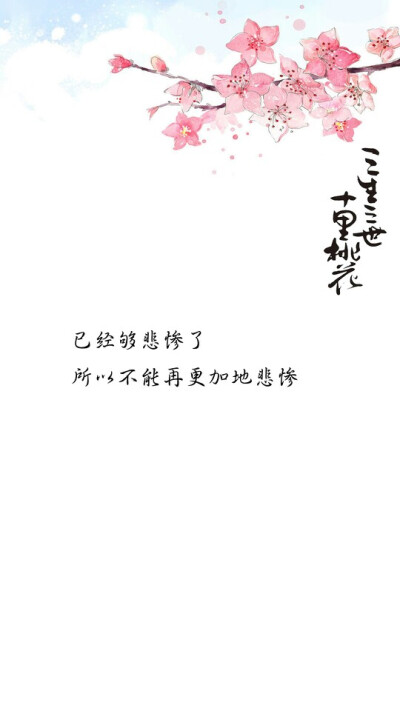 三生三世
十里桃花
已经够悲惨了
所以不能再更加地悲惨